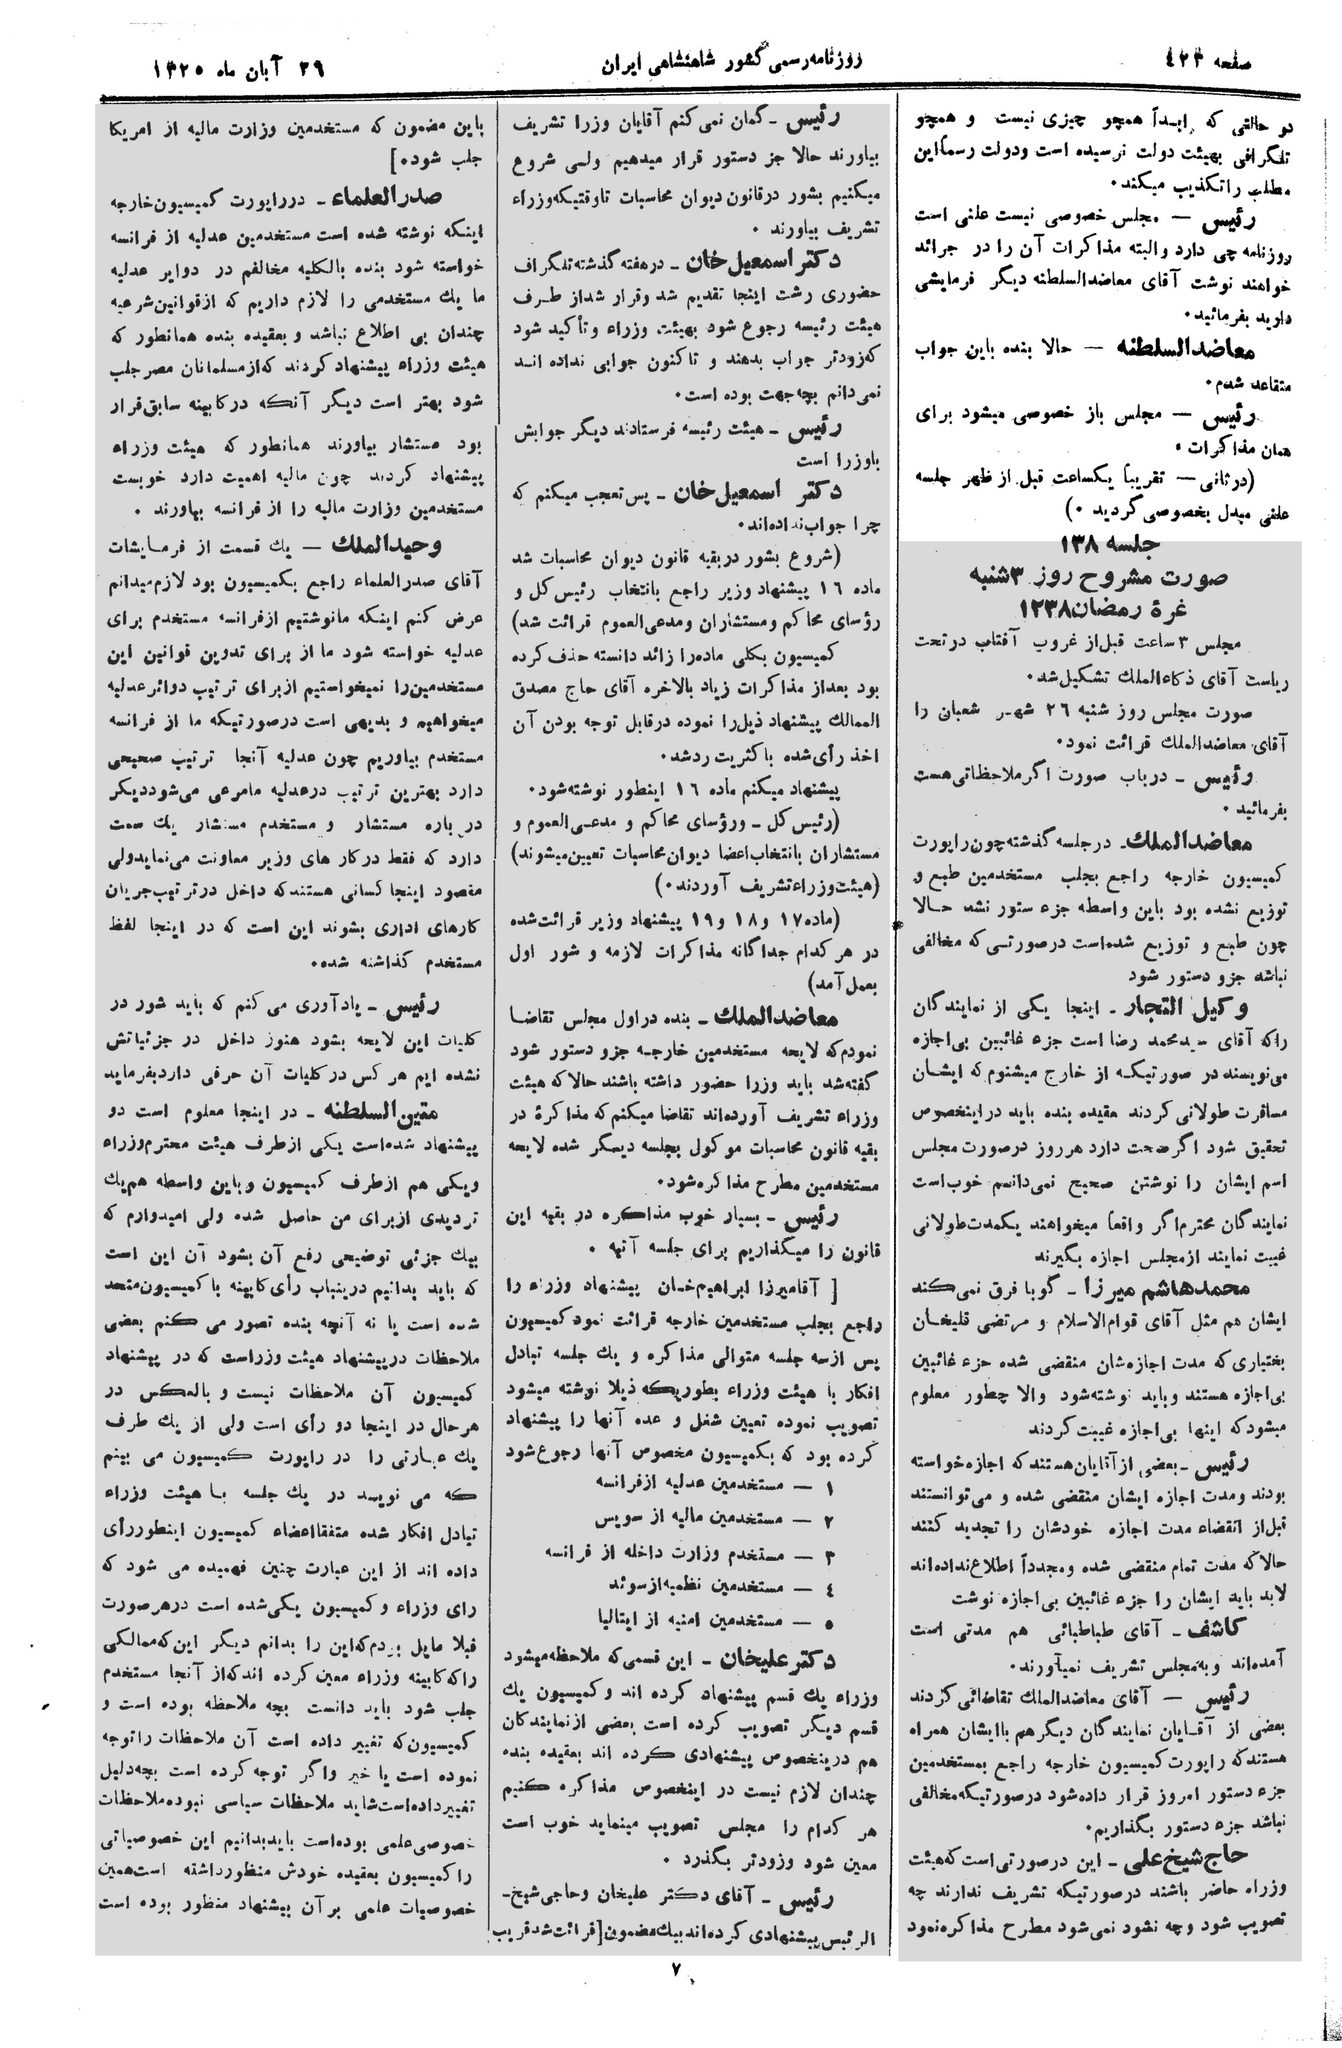 صفحه ٤٢٣
روزنامه رسمی کشور شاهنشاهی ایران
٢٦ آبان ماه ١٣٢٥
در حالتی که ابداً همچو چیزی نیست و همچو
تلگرافی بهیئت دولت نرسیده است ودولت رسماً این
مطلب را تکذیب میکند.
رئیس — مجلس خصوصی نیست علنی است
روزنامه چی دارد والبته مذاکرات آن را در جرائد
خواهند نوشت آقای معاضدالسلطنه دیگر فرمایشی
دارید بفرمائید.
معاضدالسلطنه — حالا بنده باین جواب
متقاعد شدم.
رئیس — مجلس باز خصوصی میشود برای
همان مذاکرات.
(در ثانی — تقریباً یکساعت قبل از ظهر جلسه
علنی مبدل بخصوصی گردید.)
جلسه ١٣٨
صورت مشروح روز ٣شنبه
غرهٔ رمضان١٢٣٨
مجلس ٣ ساعت قبل از غروب آفتاب در تحت
ریاست آقای ذکاءالملك تشکیل شد.
صورت مجلس روز شنبه ٢٦ شهر شعبان را
آقای معاضدالملك قرائت نمود.
رئیس - درباب صورت اگر ملاحظاتی هست
بفرمائید.
معاضدالملك- در جلسه گذشته چون راپورت
کمیسیون خارجه راجع بجلب مستخدمین طبع و
توزیع نشده بود باین واسطه جزء ستور نشد حالا
چون طبع و توزیع شده است در صورتی که مخالفی
نباشد جزو دستور شود
وکیل التجار - اینجا یکی از نمایندگان
را که آقای سیدمحمد رضا است جزء غائبین بی اجازه
می نویسند در صورتیکه از خارج میشنوم که ایشان
مسافرت طولانی کردند عقیده بنده باید در اینخصوص
تحقیق شود اگر صحت دارد هر روز در صورت مجلس
اسم ایشان را نوشتن صحیح نمی دانم خوب است
نمایندگان محترم اگر واقعاً میخواهند یکمدت طولانی
غیبت نمایند از مجلس اجازه بگیرند
محمدهاشم میرزا - گویا فرق نمی کند
ایشان هم مثل آقای قوام الاسلام و مرتضی قلیخان
بختیاری که مدت اجازه شان منقضی شده جزء غائبین
بی اجازه هستند و باید نوشته شود والا چطور معلوم
میشود که اینها بی اجازه غیبت کردند
رئیس - بعضی از آقایان هستند که اجازه خواسته
بودند و مدت اجازه ایشان منقضی شده و می توانستند
قبل از انقضاء مدت اجازه خودشان را تجدید کنند
حالا که مدت تمام منقضی شده و مجدداً اطلاع نداده اند
لابد باید ایشان را جزء غائبین بی اجازه نوشت
کاشف - آقای طباطبائی هم مدتی است
آمده اند و به مجلس تشریف نمیآورند.
رئیس — آقای معاضدالملك تقاضائی کردند
بعضی از آقایان نمایندگان دیگر هم با ایشان همراه
هستند که راپورت کمیسیون خارجه راجع بمستخدمین
جزء دستور امروز قرار داده شود در صورتیکه مخالفی
نباشد جزء دستور بگذاریم.
حاج شیخ علی - این در صورتی است که هیئت
وزراء حاضر باشند در صورتیکه تشریف ندارند چه
تصویب شود و چه نشود نمی شود مطرح مذاکره نمود
رئیس - گمان نمی کنم آقایان وزرا تشریف
بیاورند حالا جز دستور قرار میدهیم ولی شروع
میکنیم بشور در قانون دیوان محاسبات تا وقتیکه وزراء
تشریف بیاورند.
دکتر اسمعیل خان - در هفته گذشته تلگراف
حضوری رشت اینجا تقدیم شد و قرار شد از طرف
هیئت رئیسه رجوع شود بهیئت وزراء و تأکید شود
که زودتر جواب بدهند و تاکنون جوابی نداده اند
نمی دانم بچه جهت بوده است.
رئیس - هیئت رئیسه فرستادند دیگر جوابش
با وزرا است
دکتر اسمعیل خان - پس تعجب میکنم که
چرا جواب نداده اند.
(شروع بشور در بقیه قانون دیوان محاسبات شد
ماده ١٦ پیشنهاد وزیر راجع بانتخاب رئیس کل و
رؤسای محاکم و مستشاران ومدعی العموم قرائت شد)
کمیسیون بکلی ماده را زائد دانسته حذف کرده
بود بعداز مذاکرات زیاد بالاخره آقای حاج مصدق
الممالك پیشنهاد ذیل را نموده در قابل توجه بودن آن
اخذ رأی شده با کثریت رد شد.
پیشنهاد میکنم ماده ١٦ اینطور نوشته شود.
(رئیس کل - ورؤسای محاکم و مدعی العموم و
مستشاران با نتخاب اعضا دیوان محاسبات تعیین میشوند)
(هیئت وزراء تشریف آوردند.)
(ماده ١٧ و١٨ و١٩ پیشنهاد وزیر قرائت شده
در هر کدام جداگانه مذاکرات لازمه و شور اول
بعمل آمد)
معاضدالملك - بنده در اول مجلس تقاضا
نمودم که لایحه مستخدمین خارجه جزو دستور شود
گفته شد باید وزرا حضور داشته باشند حالا که هیئت
وزراء تشریف آورده اند تقاضا میکنم که مذاکرهٔ در
بقیه قانون محاسبات موکول بجلسه دیگر شده لایحه
مستخدمین مطرح مذاکره شود.
رئیس - بسیار خوب مذاکره در بقیه این
قانون را میگذاریم برای جلسه آتیه.
[ آقامیرزا ابراهیم خان پیشنهاد وزراء را
راجع بجلب مستخدمین خارجه قرائت نمود کمیسیون
پس از سه جلسه متوالی مذاکره و یك جلسه تبادل
افکار با هیئت وزراء بطوریکه ذیلا نوشته میشود
تصویب نموده تعیین شغل و عده آنها را پیشنهاد
کرده بود که بکمیسیون مخصوص آنها رجوع شود
١ — مستخدمین عدلیه از فرانسه
٢ — مستخدمین مالیه از سویس
٣ — مستخدم وزارت داخله از فرانسه
٤ — مستخدمین نظمیه از سوئد
٥ — مستخدمین امنیه از ایتالیا
دکتر علیخان - این قسمی که ملاحظه میشود
وزراء یك قسم پیشنهاد کرده اند و کمیسیون یك
قسم دیگر تصویب کرده است بعضی از نمایندکان
هم در ینخصوص پیشنهادی کرده اند بعقیده بنده
چندان لازم نیست در اینخصوص مذاکره کنیم
هر کدام را مجلس تصویب مینماید خوب است
معین شود وزودتر بگذرد.
رئیس - آقای دکتر علیخان و حاجی شیخ-
الرئیس پیشنهادی کرده اند بیك مضمون [قرائت شد قریب
باین مضمون که مستخدمین وزارت مالیه از امریکا
جلب شود.]
صدرالعلماء - در راپورت کمیسیون خارجه
اینکه نوشته شده است مستخدمین عدلیه از فرانسه
خواسته شود بنده بالکلیه مخالفم در دوایر عدلیه
ما یك مستخدمی را لازم داریم که از قوانین شرعیه
چندان بی اطلاع نباشد و بعقیده بنده همانطور که
هیئت وزراء پیشنهاد کردند که از مسلمانان مصر جلب
شود بهتر است دیگر آنکه در کابینه سابق قرار
بود مستشار بیاورند همانطور که هیئت وزراء
پیشنهاد کردند چون مالیه اهمیت دارد خوبست
مستخدمین وزارت مالیه را از فرانسه بیاورند.
وحیدالملك — یك قسمت از فرمایشات
آقای صدرالعلماء راجع بکمیسیون بود لازم میدانم
عرض کنم اینکه ما نوشتیم از فرانسه مستخدم برای
عدلیه خواسته شود ما از برای تدوین قوانین این
مستخدمین را نمیخواستیم از برای ترتیب دوائر عدلیه
میخواهیم و بدیهی است در صورتیکه ما از فرانسه
مستخدم بیاوریم چون عدلیه آنجا ترتیب صحیحی
دارد بهترین ترتیب در عدلیه ما مرعی می شود دیگر
در باره مستشار و مستخدم مستشار یك سمت
دارد که فقط در کار های وزیر معاونت می نماید ولی
مقصود اینجا کسانی هستند که داخل در ترتیب جریان
کارهای اداری بشوند این است که در اینجا لفظ
مستخدم گذاشته شده.
رئیس - یادآوری می کنم که باید شور در
کلیات این لایحه بشود هنوز داخل در جزئیاتش
نشده ایم هر کس در کلیات آن حرفی دارد بفرماید
متین السلطنه - در اینجا معلوم است دو
پیشنهاد شده است یکی از طرف هیئت محترم وزراء
ویکی هم از طرف کمیسیون و باین واسطه هم یك
تردیدی از برای من حاصل شده ولی امیدوارم که
بیك جزئی توضیحی رفع آن بشود آن این است
که باید بدانیم درینباب رأی کابینه با کمیسیون متحد
شده است یا نه آنچه بنده تصور می کنم بعضی
ملاحظات در پیشنهاد هیئت وزراست که در پیشنهاد
کمیسیون آن ملاحظات نیست و بالعکس در
هر حال در اینجا دو رأی است ولی از یك طرف
یك عبارتی را در راپورت کمیسیون می بینم
که می نویسد در یك جلسه با هیئت وزراء
تبادل افکار شده متفقا اعضاء کمیسیون اینطور رأی
داده اند از این عبارت چنین فهمیده می شود که
رای وزراء و کمیسیون یکی شده است در هر صورت
قبلا مایل بودم که این را بدانم دیگر این که ممالکی
را که کابینه وزراء معین کرده اند که از آنجا مستخدم
جلب شود باید دانست بچه ملاحظه بوده است و
کمیسیون که تغییر داده است آن ملاحظات را توجه
نموده است یا خیر واگر توجه کرده است بچه دلیل
تغییر داده است شاید ملاحظات سیاسی نبوده ملاحظات
خصوصی علمی بوده است باید بدانیم این خصوصیاتی
را کمیسیون بعقیده خودش منظور داشته است همین
خصوصیات علمی بر آن پیشنهاد منظور بوده است
٧